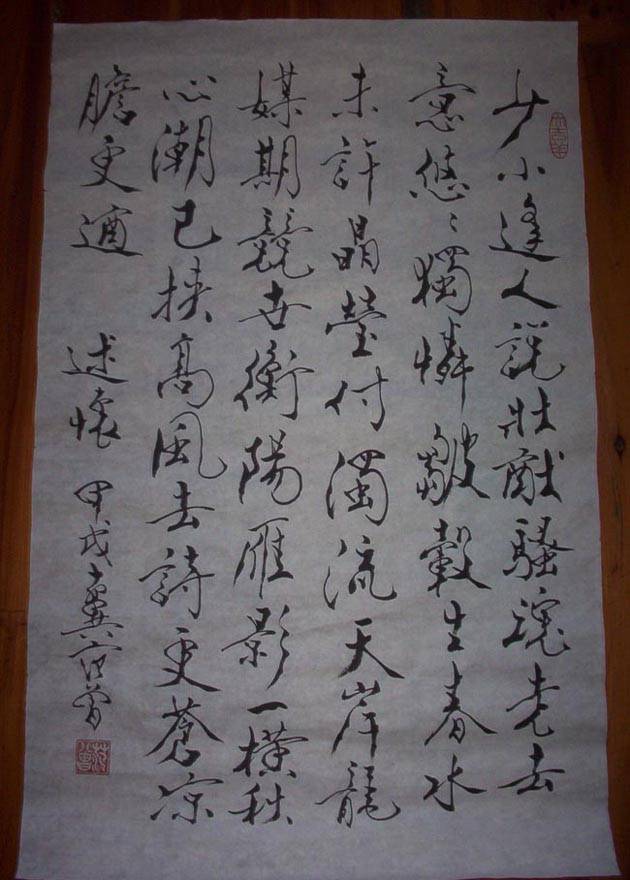 少小逢人說壯猷騷魂老去
意悠〻獨憐皺縠生春水
未許晶瑩付濁流天岸龍
媒期競世衡陽雁影一橫秋
心潮已挾高風去詩更蒼涼
膽更遒 述懷 甲戌十翼范曾
范曾